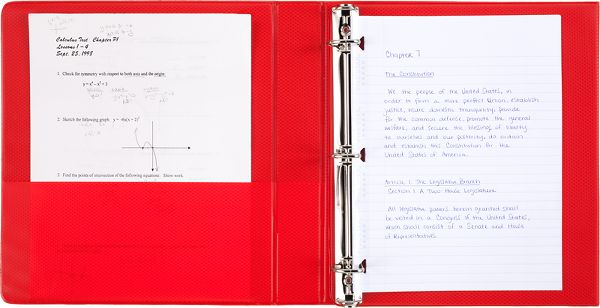 Calculus Test Chapter P1
Lessons 1 - 4
Sept. 25, 1998
1. Check for symmetry with respect to both axis and the origin.
2. Sketch the following graph:
3. Find the points of intersection of the following equations. Show work.
Chapter 7
The Constitution
We the people of the United States, in
order to form a more perfect Union, establish
justice, insure domestic tranquility, provide
for the common defense, promote the general
welfare, and secure the blessing of liberty
to ourselves and our posterity, do ordain
and establish this Constitution for the
United States of America.
Article 1 The Legislative Branch
Section 1 A Two House Legislature
All legislative powers herein granted shall
be vested in a Congress of the United States,
which shall consist of a Senate and House
of Representatives.